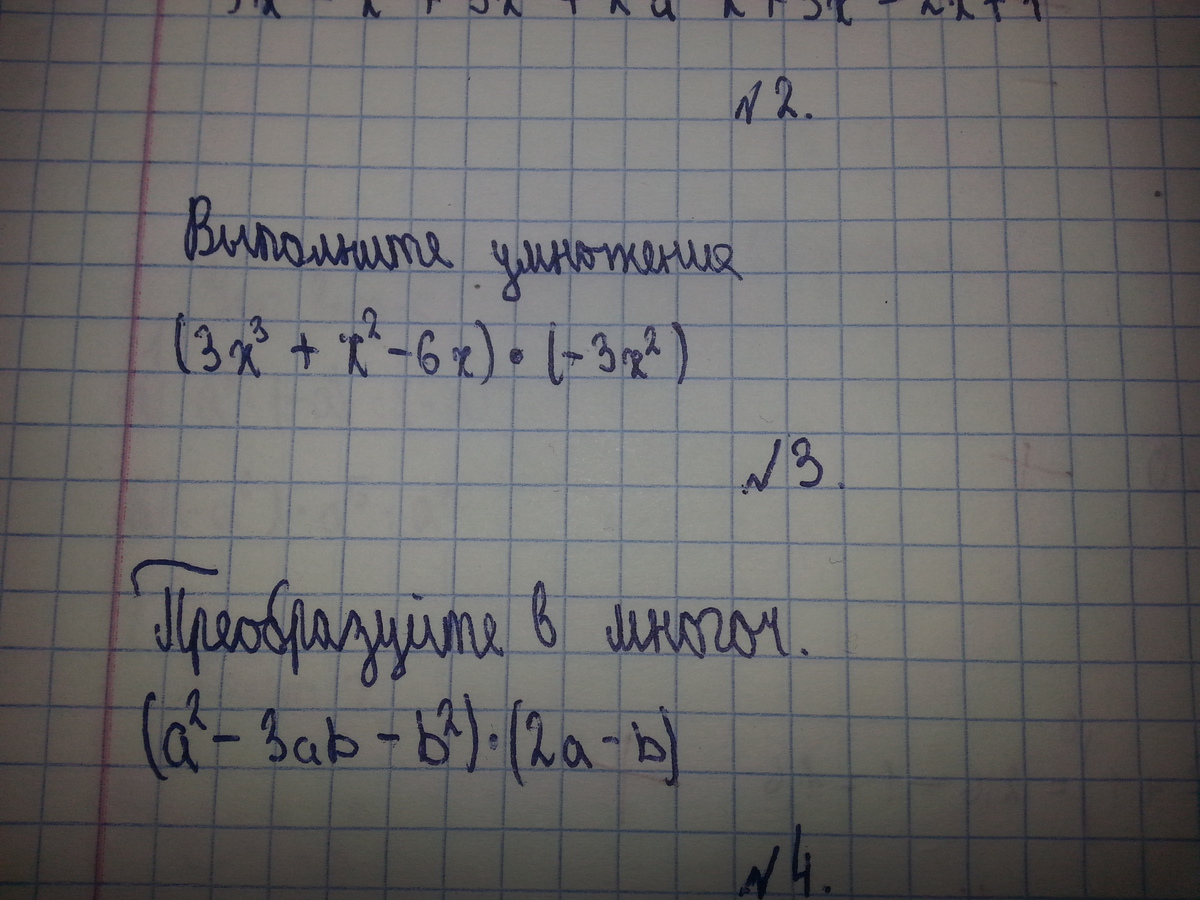 №2.
Выполните умножение
(3x³ + x² - 6x) • (-3x²)
№3.
Преобразуйте в многоч.
(a² - 3ab - b²) • (2a - b)
№4.